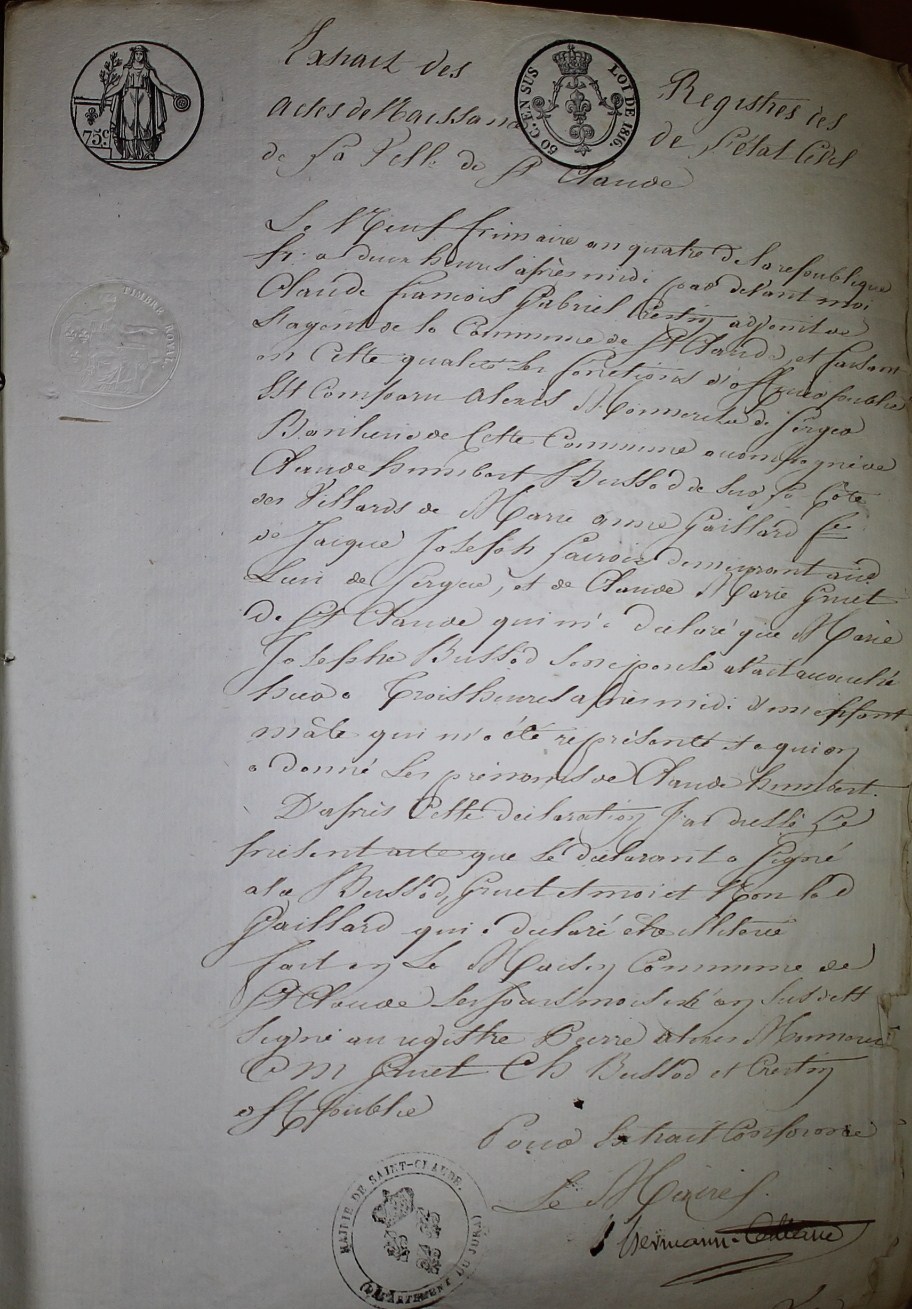 Extrait des Registres des
actes de Naissance de l'état Civil
de la Ville de St Claude
75 c.
50 C. EN SUS
LOI DE 1816.
TIMBRE ROYAL
Le Neuf frimaire an quatre de la republique
fr. a deux heures après midi pard devant moi
Claude françois Gabriel Crestin adjoint de
l'agent de la Commune de St Claude, et faisant
en Cette qualité les fonctions d'officier public
Est Comparu Alexis de
Banlieue de Cette Commune accompagné de
Claude humbert Bussod de sur la Côte
des Villards de Marie anne Gaillard fe
de Jacque Joseph demeurant aud
Lieu de et de Claude Marie Gruet
de St Claude qui m'a déclaré que Marie
Josephe Bussod son epouse etait accouchée
hier a Trois heures après midi d'un enfant
mâle qui m'a été représenté et a qui on
a donné les prénoms de Claude humbert.
D'après Cette déclaration J'ai dressé Le
présent acte que le déclarant a Signé
avec Bussod, Gruet et moi et Non lad
Gaillard qui a déclaré être illiterée
fait en La Maison Commune de
St Claude Les jours mois et an susdits
Signé au registre Pierre alexis
C M Gruet Ch Bussod et Crestin
off public
Pour Extrait Conforme
Le Maire
MAIRIE DE SAINT-CLAUDE.
(DÉPARTEMENT DU JURA)